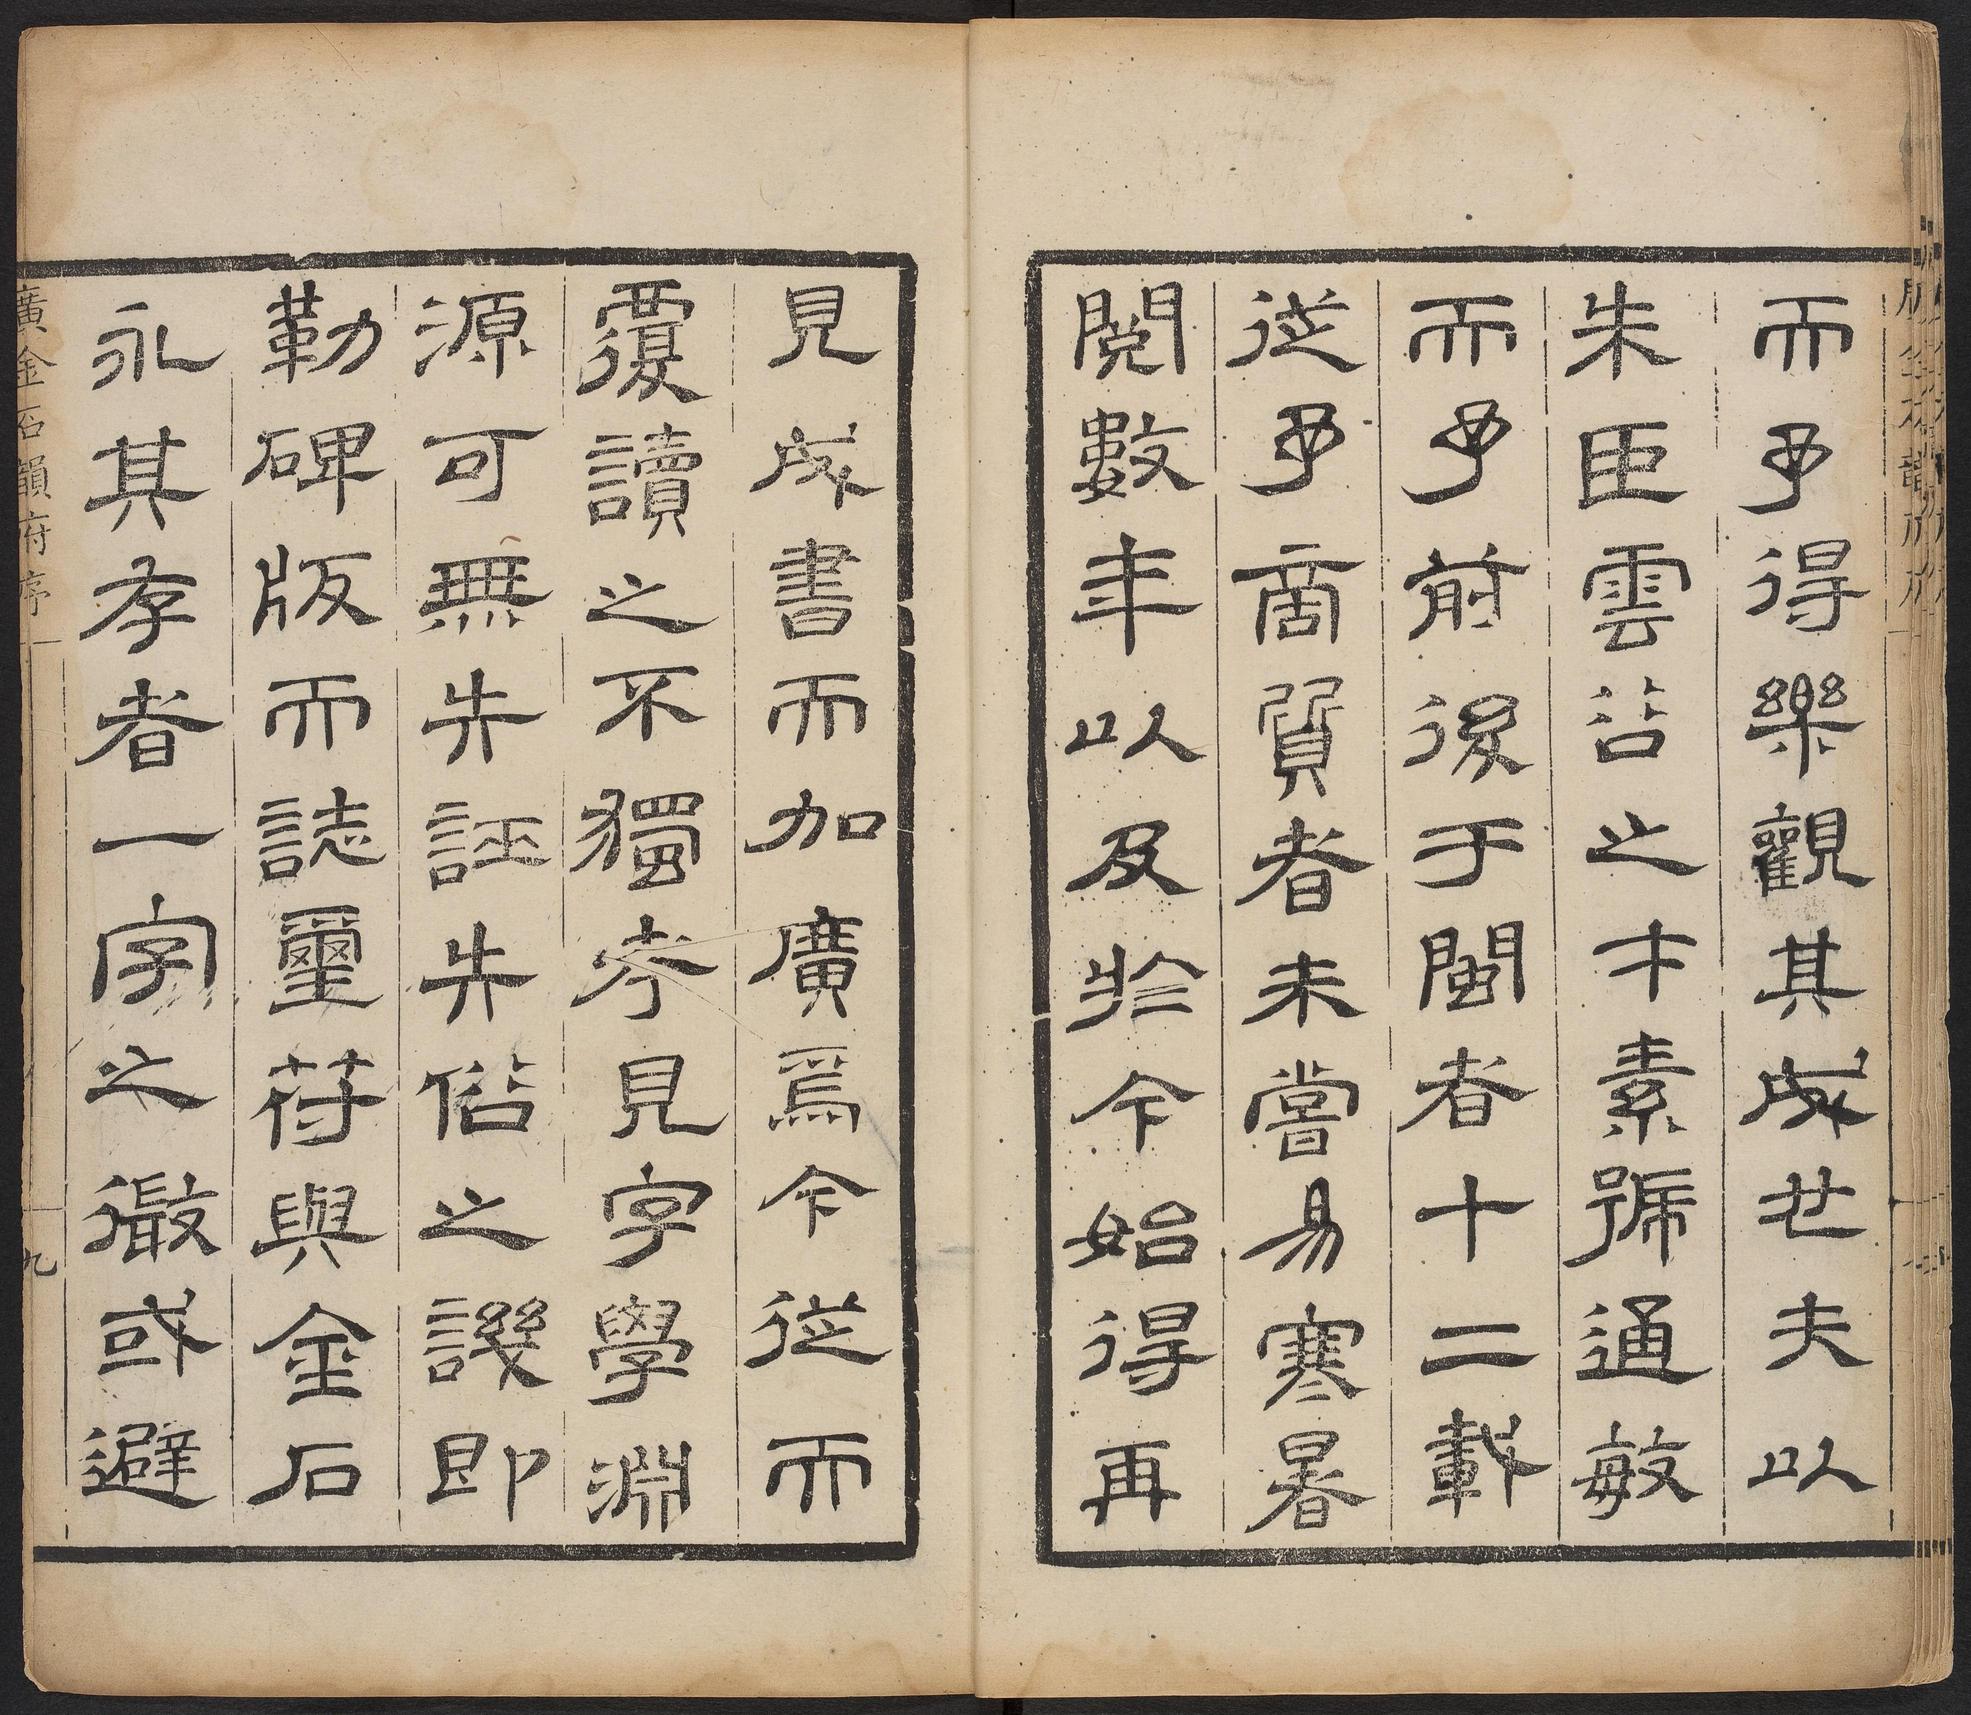 而予得樂觀其成世夫以
朱臣雲苕之才素號通敏
而予前後于閩者十二載
從予商質者未嘗易寒暑
閱數年以及於今始得再
見成書而加廣焉今從而
覆讀之不獨考見字學淵
源可無失誣失俗之譏即
勒碑版而誌璽符與金石
永其存者一字之徵或避
廣金石韻府序
九